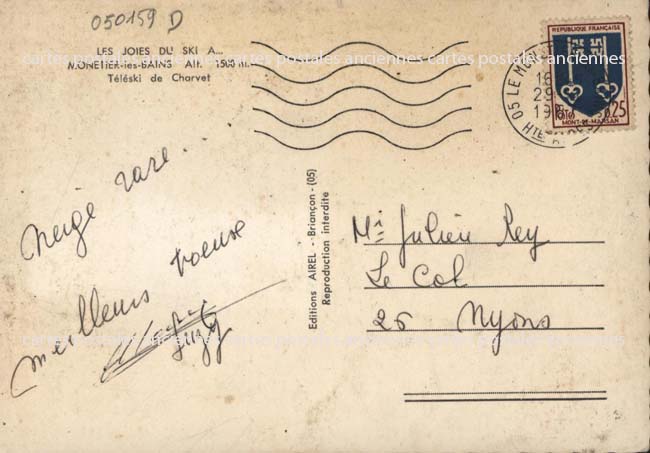 050159 D
LES JOIES DU SKI A...
MONETIER-les-BAINS Alt. 1500 m.
Téléski de Charvet
cartes postales anciennes cartes postales anciennes cartes postales anciennes
REPUBLIQUE FRANÇAISE
05 LE M
16
29
19
Htes
0,25
MONT-DE-MARSAN
neige rare...
meilleurs voeux
Editions AIREL - Briançon - (05)
Reproduction interdite
Mr Julien Rey
Le Col
26 Nyons
cartes postales anciennes cartes postales anciennes cartes postales anciennes